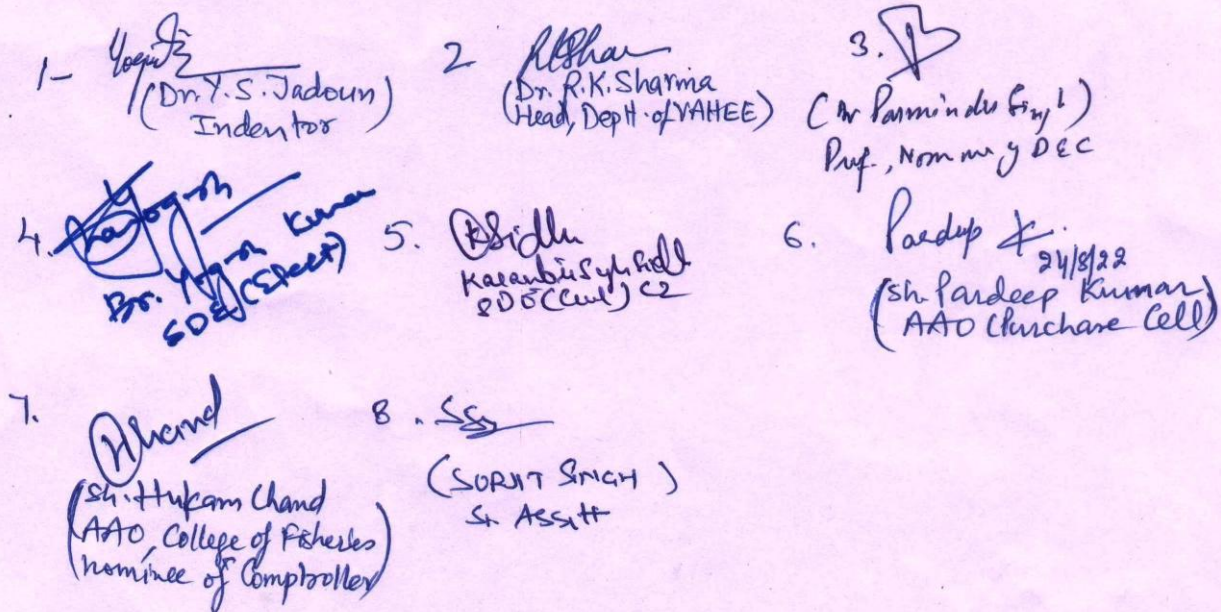 1-
(Dr. Y. S. Jadoun)
Indentor
2
(Dr. R.K. Sharma
(Head, Deptt. of VAHEE)
3.
(Dr Parminder Singh)
Prof., Nominee
4.
Er. Yogesh Kumar
SDE (Elect)
5. Sidhu
SDE (Civil) C2
6. Pardeep K.
24/8/22
(Sh. Pardeep Kumar)
AAO (Purchase Cell)
7.
Hchand
(Sh. Hukam Chand
AAO, College of Fisheries
nominee of Comptroller)
8.
(SURJIT SINGH)
Sr. Asstt